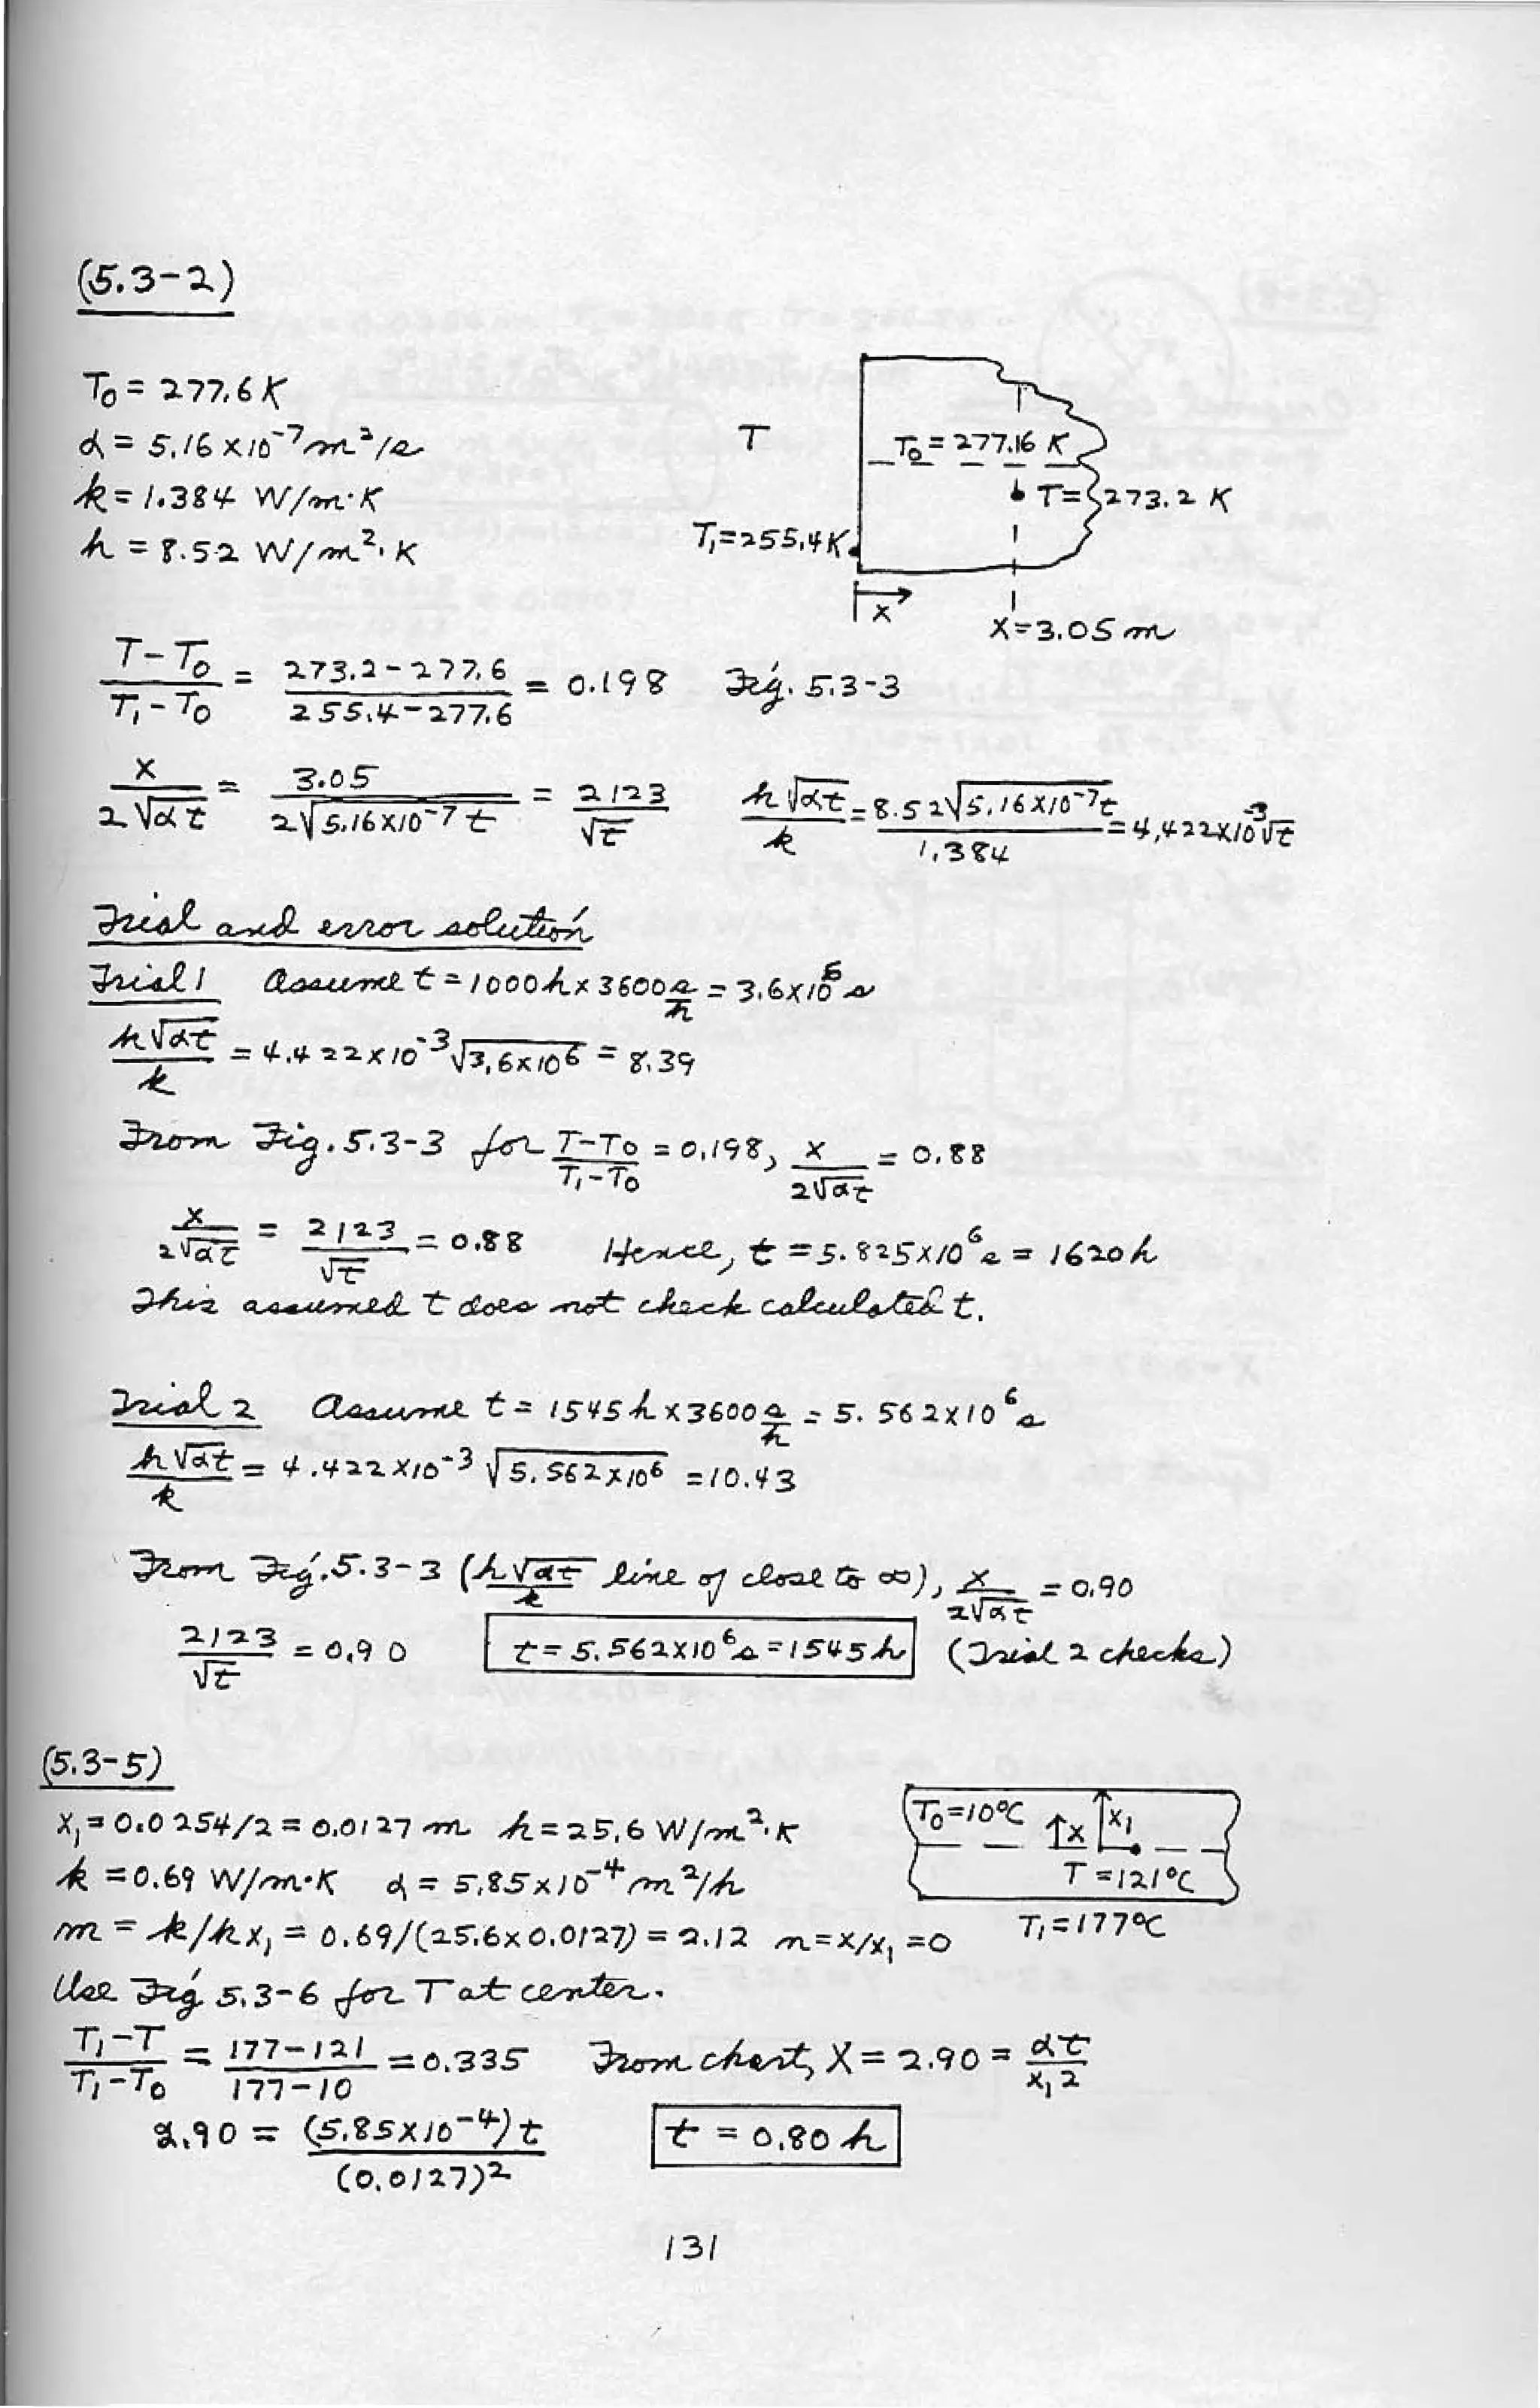 (5.3-2)
T₀ = 277.6 K
α = 5.16 x 10⁻⁷ m²/s
k = 1.384 W/m·K
h = 8.52 W/m²·K
T
T₀ = 277.16 K
T = 273.2 K
T₁ = 255.4 K
x
x = 3.05 m
(T - T₀)/(T₁ - T₀) = (273.2 - 277.6)/(255.4 - 277.6) = 0.198 Fig. 5.3-3
x/(2√αt) = 3.05/(2√5.16x10⁻⁷ t) = 2123/√t h√αt/k = 8.52√5.16x10⁻⁷t/1.384 = 4.422x10⁻³√t
Trial and error solution
Trial 1 Assume t = 1000 h x 3600 s/h = 3.6x10⁶ s
h√αt/k = 4.422x10⁻³√3.6x10⁶ = 8.39
From Fig. 5.3-3 for (T-T₀)/(T₁-T₀) = 0.198, x/(2√αt) = 0.88
x/(2√αt) = 2123/√t = 0.88 Hence, t = 5.825x10⁶ s = 1620 h
This assumed t does not check calculated t.
Trial 2 Assume t = 1545 h x 3600 s/h = 5.562x10⁶ s
h√αt/k = 4.422x10⁻³√5.562x10⁶ = 10.43
From Fig. 5.3-3 (h√αt/k line of close to ∞), x/(2√αt) = 0.90
2123/√t = 0.90 t = 5.562x10⁶ s = 1545 h (Trial 2 checks)
(5.3-5)
x₁ = 0.0254/2 = 0.0127 m h = 25.6 W/m²·K
k = 0.69 W/m·K α = 5.85x10⁻⁴ m²/h
m = k/hx₁ = 0.69/(25.6x0.0127) = 2.12 n = x/x₁ = 0
T₀ = 10°C
x
x₁
T = 121°C
T₁ = 177°C
Use Fig 5.3-6 for T at center.
(T₁ - T)/(T₁ - T₀) = (177 - 121)/(177 - 10) = 0.335 From chart, X = 2.90 = αt/x₁²
2.90 = (5.85x10⁻⁴) t/(0.0127)² t = 0.80 h
131